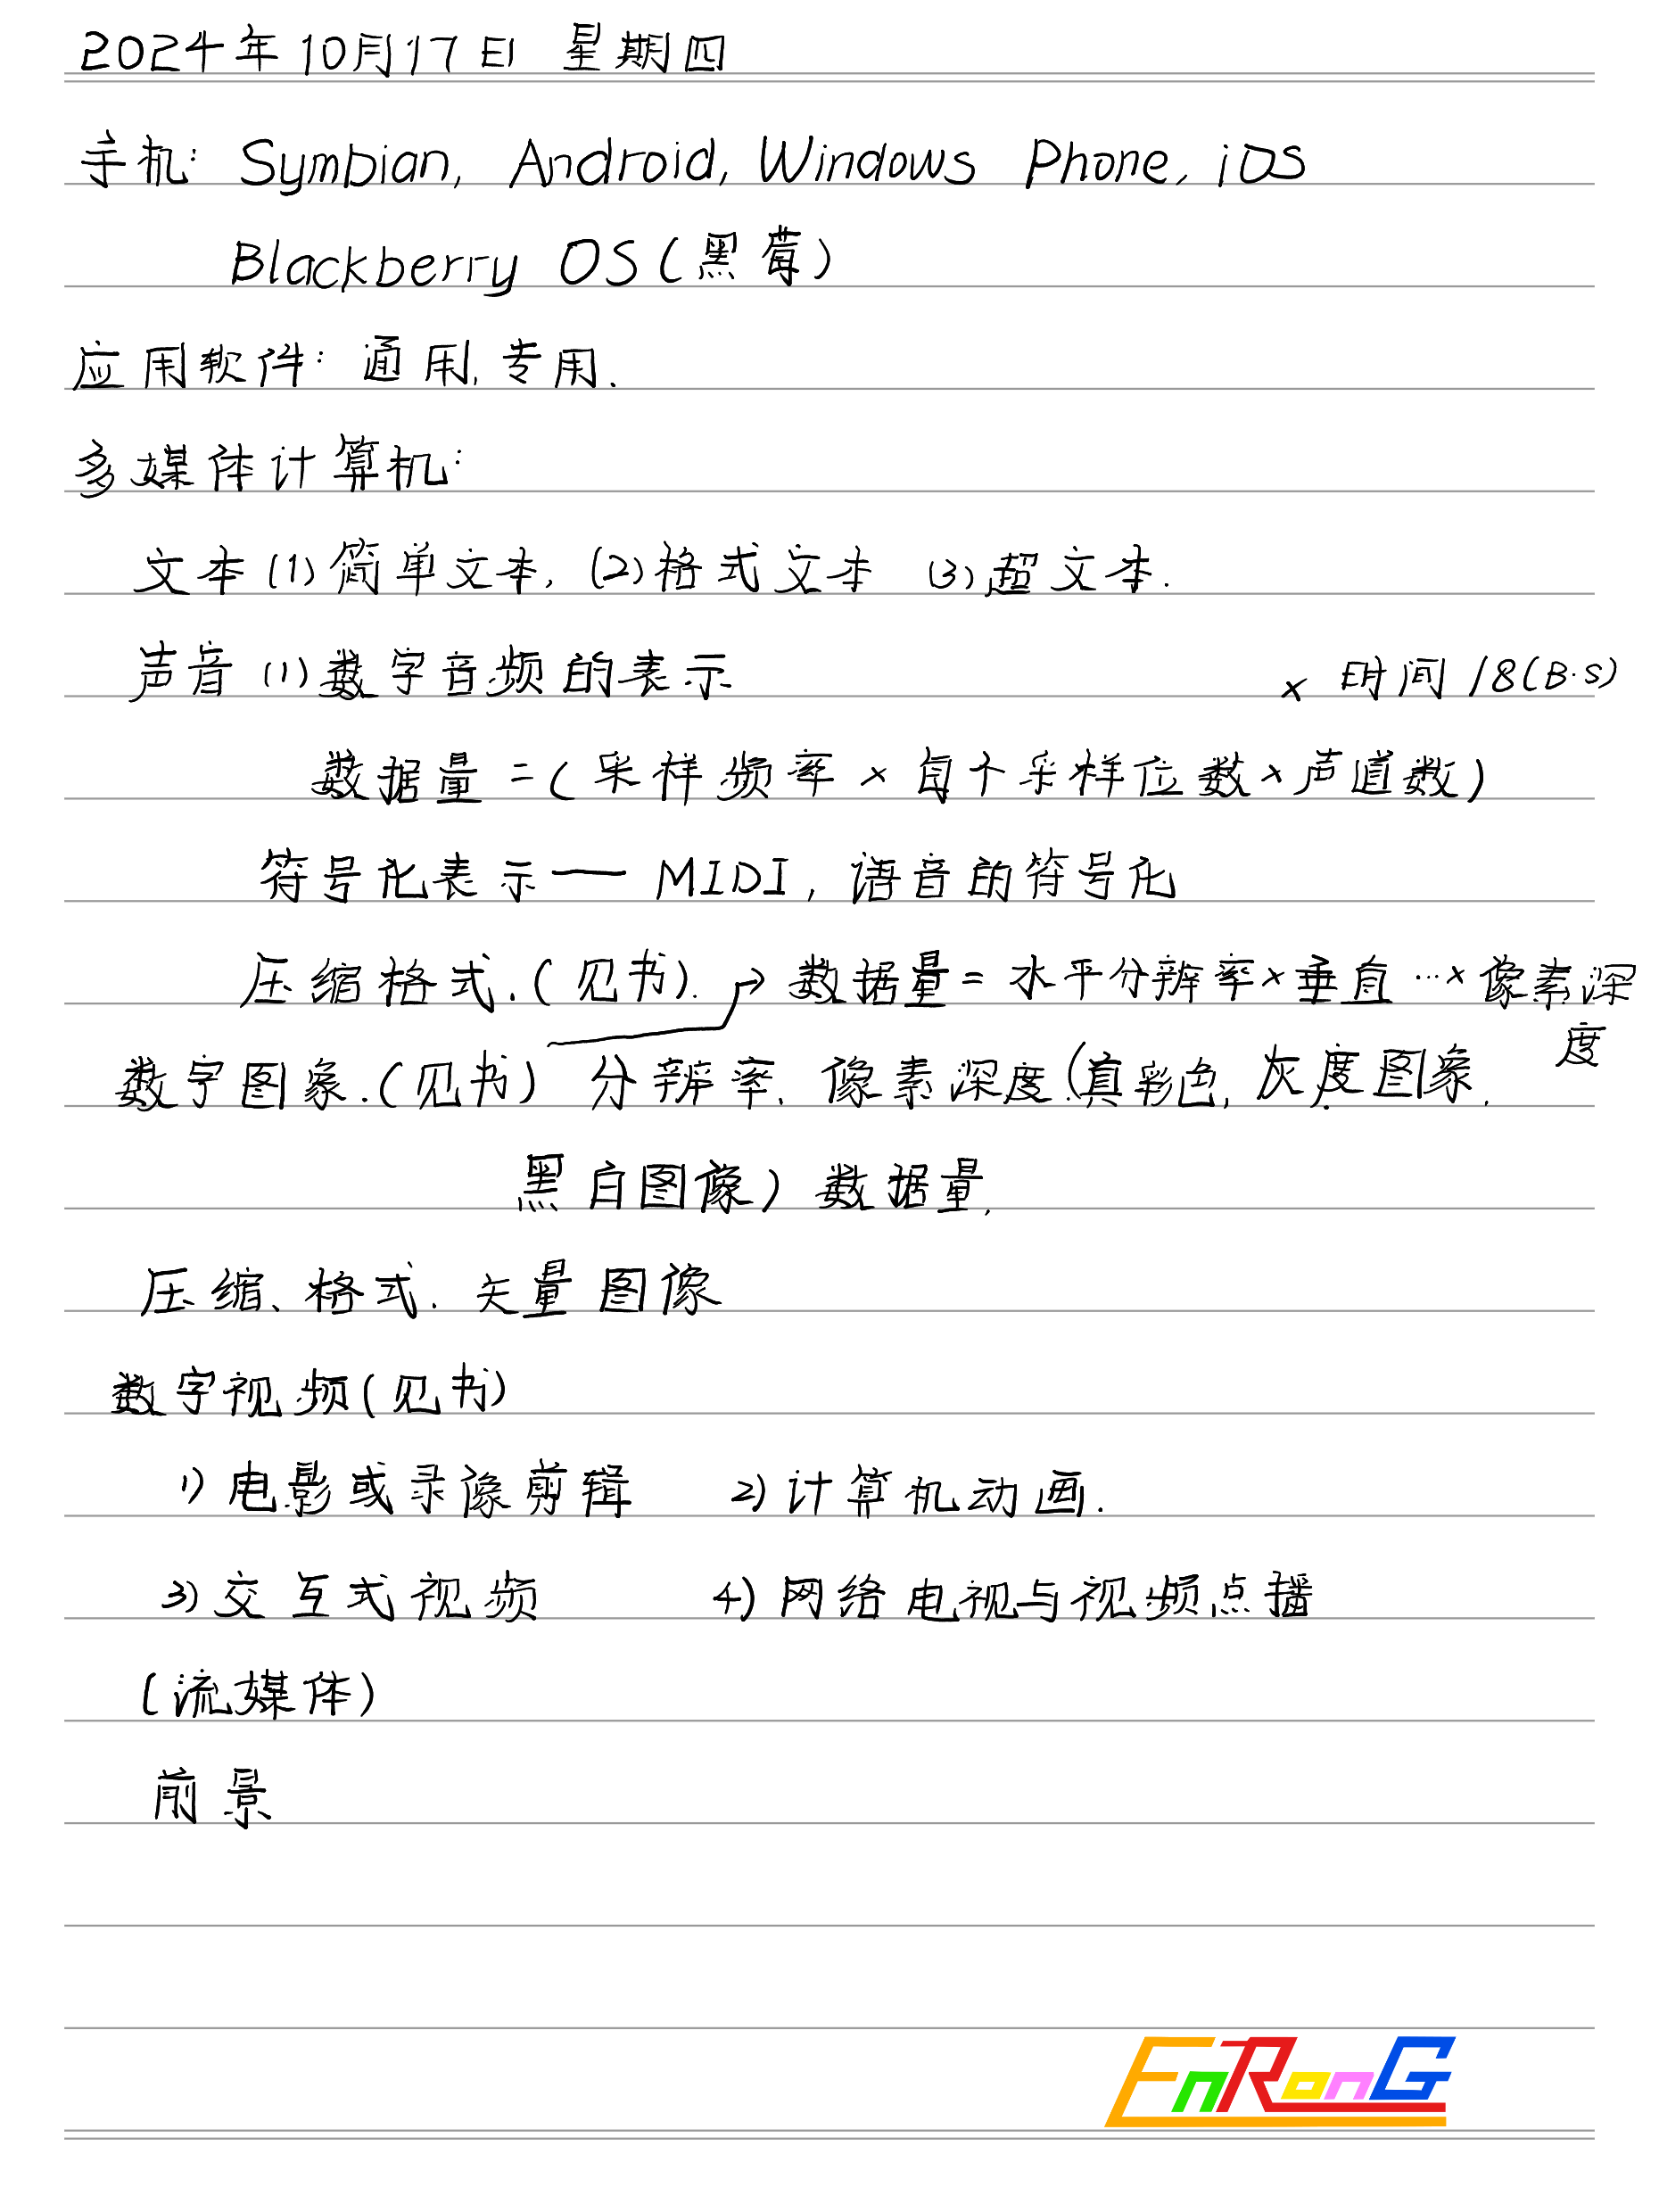 2024年10月17日 星期四
手机: Symbian, Android, Windows Phone, iOS
Blackberry OS(黑莓)
应用软件: 通用, 专用.
多媒体计算机:
文本 (1)简单文本, (2)格式文本 (3)超文本.
声音 (1)数字音频的表示
× 时间 /8(B·S)
数据量=(采样频率×每个采样位数×声道数)
符号化表示— MIDI, 语音的符号化
压缩格式.(见书). → 数据量=水平分辨率×垂直…×像素深度
数字图象.(见书) 分辨率. 像素深度.(真彩色, 灰度图象.
黑白图像) 数据量.
压缩、格式. 矢量图像
数字视频(见书)
1) 电影或录像剪辑 2) 计算机动画.
3) 交互式视频 4) 网络电视与视频点播
(流媒体)
前景
EnRonG